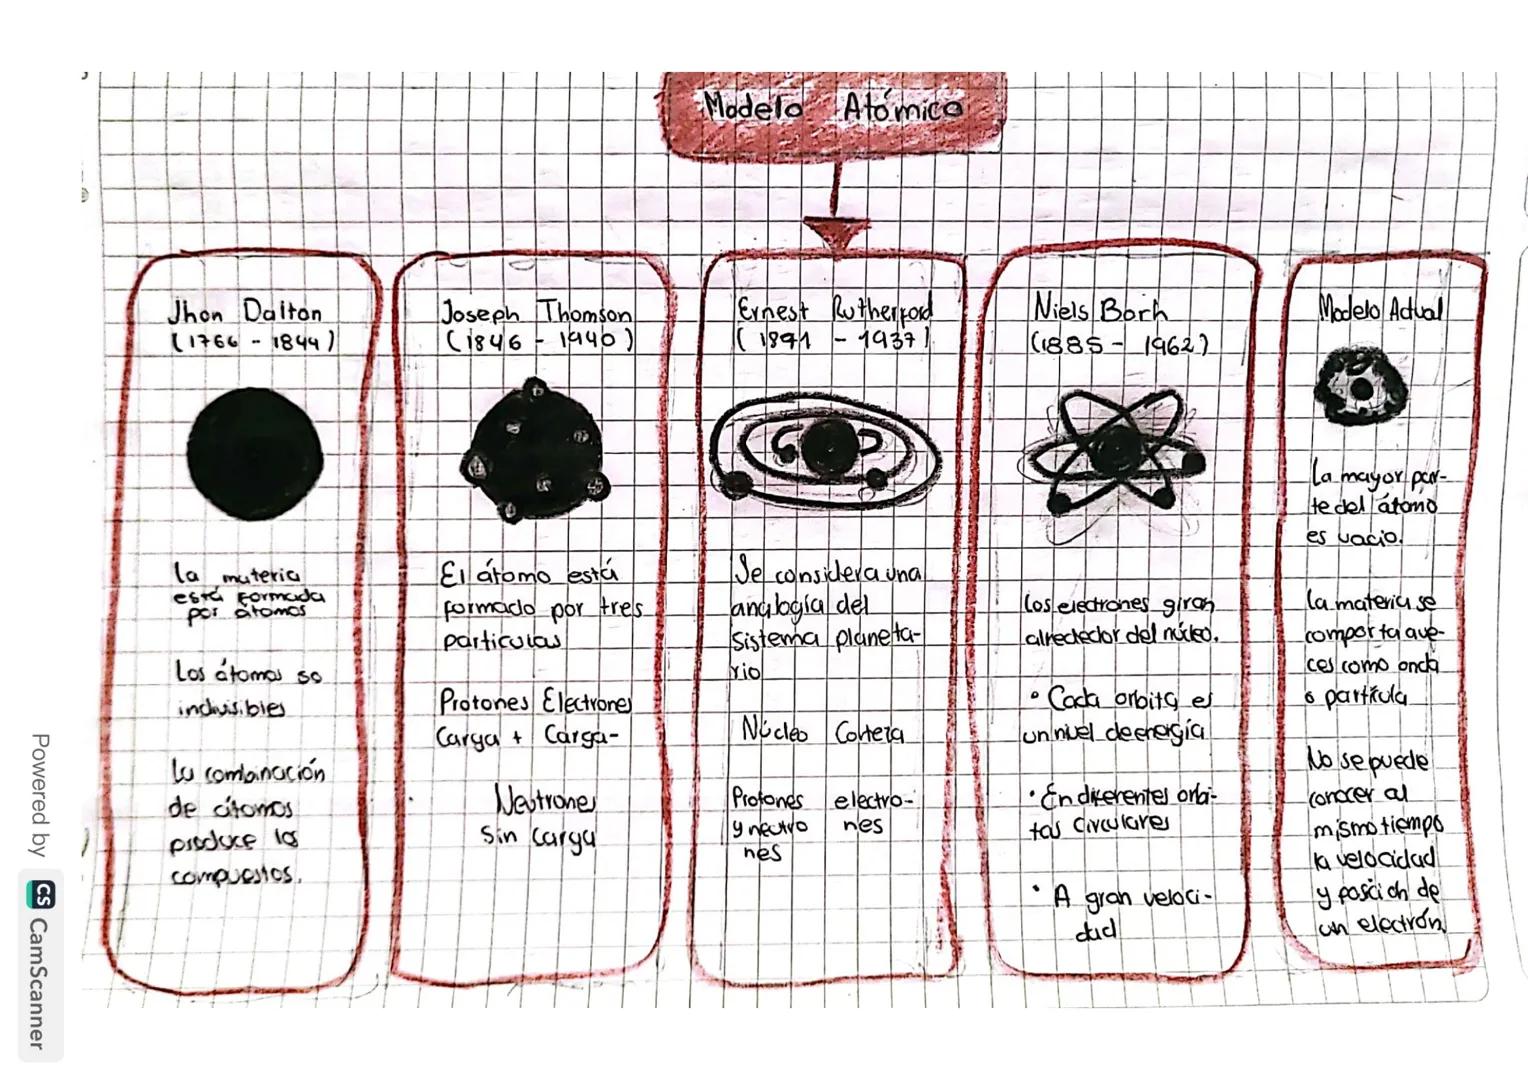 Modelo Atómico
Jhon Dalton
(1766 - 1844)
La materia
está formada
por átomos
Los átomos so
indivisibles
La combinación
de átomos
produce los
compuestos.
Joseph Thomson
(1846 - 1940)
El átomo está
formado por tres
particulas
Protones Electrones
Carga + Carga-
Neutrones
Sin Carga
Ernest Rutherford
(1891 - 1937)
Se considera una
analogía del
sistema planeta-
rio
Núcleo Corteza
Protones electro-
y neutro nes
nes
Niels Borh
(1885 - 1962)
Los electrones giran
alrededor del núcleo.
• Cada orbita es
un nivel de energía
• En diferentes orbi-
tas Circulares
• A gran veloci-
dad
Modelo Actual
La mayor par-
te del átomo
es vacio.
La materia se
comporta ave-
ces como onda
o partícula
No se puede
conocer al
mismo tiempo
la velocidad
y posición de
un electrón.
Powered by CS CamScanner